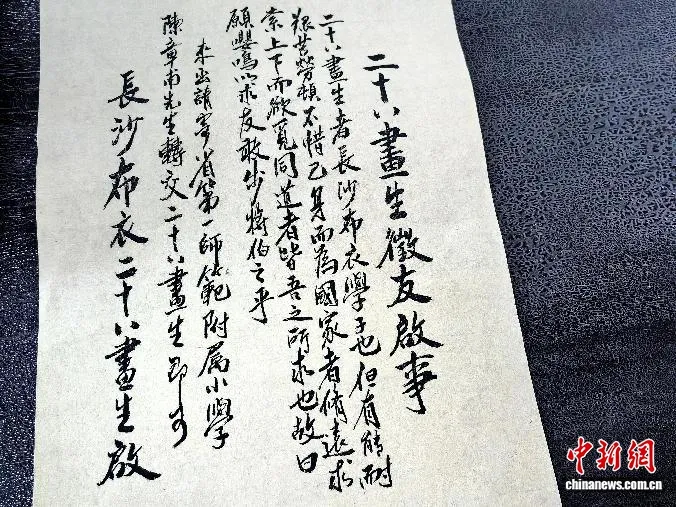 二十八畫生徵友啟事
二十八畫生者長沙布衣學子也但有能耐
艱苦勞頓不惜己身而為國家者修遠求
索上下而欲覓同道者皆吾之所求也故曰
願嚶鳴以求友敢步將伯之乎
來函請寄省第一師範附屬小學
陳章甫先生轉交二十八畫生即可
長沙布衣二十八畫生啟
中新網
chinanews.com